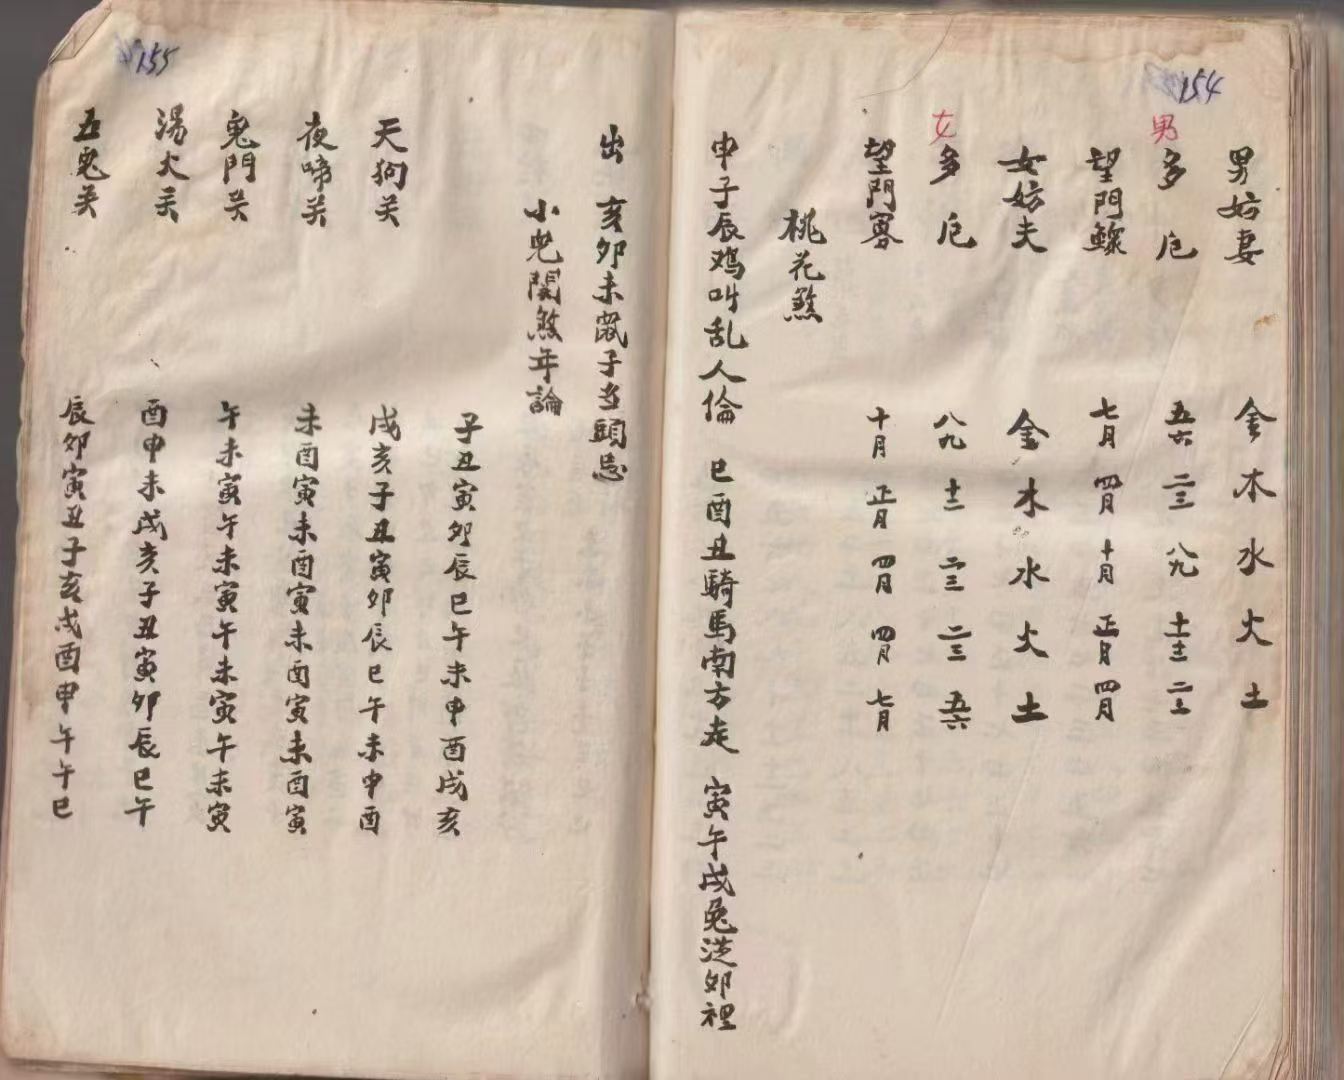 154
男妨妻 金木水火土
男
多厄 五六 二三 八九 十一十二 二三
望門鰥 七月 四月 十月 正月 四月
女妨夫 金木水火土
女
多厄 八九 十二 二三 二三 五六
望門寡 十月 正月 四月 四月 七月
桃花煞
申子辰鸡叫乱人倫 巳酉丑騎馬南方走 寅午戌兔從卯裡
155
出 亥卯未鼠子当頭忌
小兒関煞年論
子丑寅卯辰巳午未申酉戌亥
天狗关 戌亥子丑寅卯辰巳午未申酉
夜啼关 未酉寅未酉寅未酉寅未酉寅
鬼門关 午未寅午未寅午未寅午未寅
湯火关 酉申未戌亥子丑寅卯辰巳午
五鬼关 辰卯寅丑子亥戌酉申午午巳